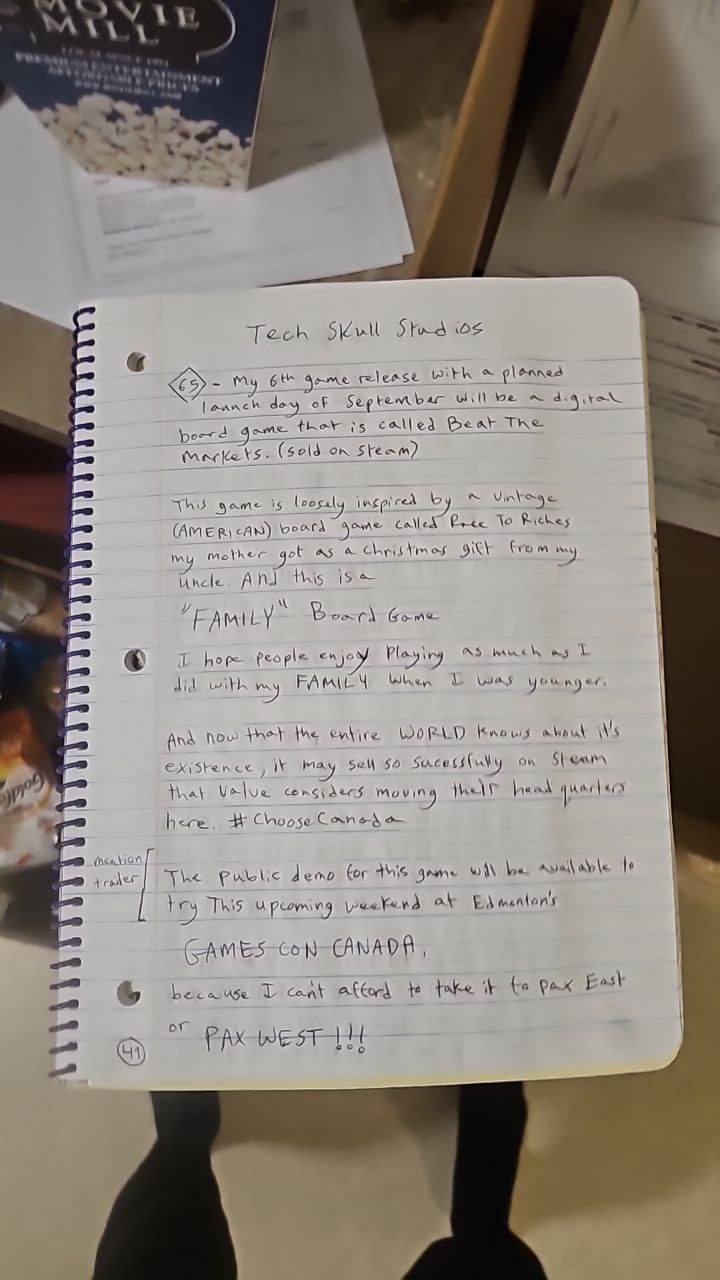 MOVIE
MILL
PREMIUM ENTERTAINMENT
AFFORDABLE PRICES
Tech Skull Studios
65 - My 6th game release with a planned
launch day of September will be a digital
board game that is called Beat The
Markets. (sold on steam)
This game is loosely inspired by a vintage
(AMERICAN) board game called Race To Riches
my mother got as a christmas gift from my
uncle. And this is a
"FAMILY" Board Game
I hope people enjoy Playing as much as I
did with my FAMILY when I was younger.
And now that the entire WORLD knows about it's
existence, it may sell so sucessfully on Steam
that Valve considers moving their head quarters
here. #ChooseCanada
mention
trailer
The public demo for this game will be available to
try This upcoming weekend at Edmonton's
GAMES CON CANADA,
because I can't afford to take it to pax East
or PAX WEST !!!
41
Goldfis